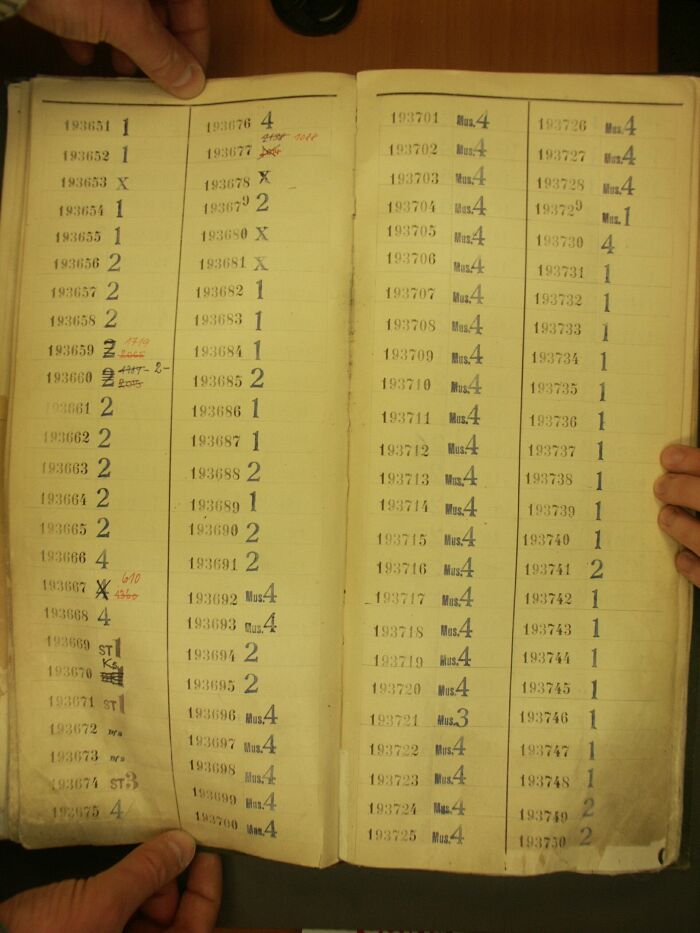 193651 1
193652 1
193653 X
193654 1
193655 1
193656 2
193657 2
193658 2
193659 2 1719 2065
193660 2 2-
193661 2
193662 2
193663 2
193664 2
193665 2
193666 4
193667 4 610 1360
193668 4
193669 ST 1
193670 Ks
193671 ST 1
193672
193673
193674 ST 3
193675 4
193676 4
193677
193678 X
193679 2
193680 X
193681 X
193682 1
193683 1
193684 1
193685 2
193686 1
193687 1
193688 2
193689 1
193690 2
193691 2
193692 Mus. 4
193693 Mus. 4
193694 2
193695 2
193696 Mus. 4
193697 Mus. 4
193698 Mus. 4
193699 Mus. 4
193700 Mus. 4
193701 Mus. 4
193702 Mus. 4
193703 Mus. 4
193704 Mus. 4
193705 Mus. 4
193706 Mus. 4
193707 Mus. 4
193708 Mus. 4
193709 Mus. 4
193710 Mus. 4
193711 Mus. 4
193712 Mus. 4
193713 Mus. 4
193714 Mus. 4
193715 Mus. 4
193716 Mus. 4
193717 Mus. 4
193718 Mus. 4
193719 Mus. 4
193720 Mus. 4
193721 Mus. 3
193722 Mus. 4
193723 Mus. 4
193724 Mus. 4
193725 Mus. 4
193726 Mus. 4
193727 Mus. 4
193728 Mus. 4
193729 Mus. 1
193730 4
193731 1
193732 1
193733 1
193734 1
193735 1
193736 1
193737 1
193738 1
193739 1
193740 1
193741 2
193742 1
193743 1
193744 1
193745 1
193746 1
193747 1
193748 1
193749 2
193750 2